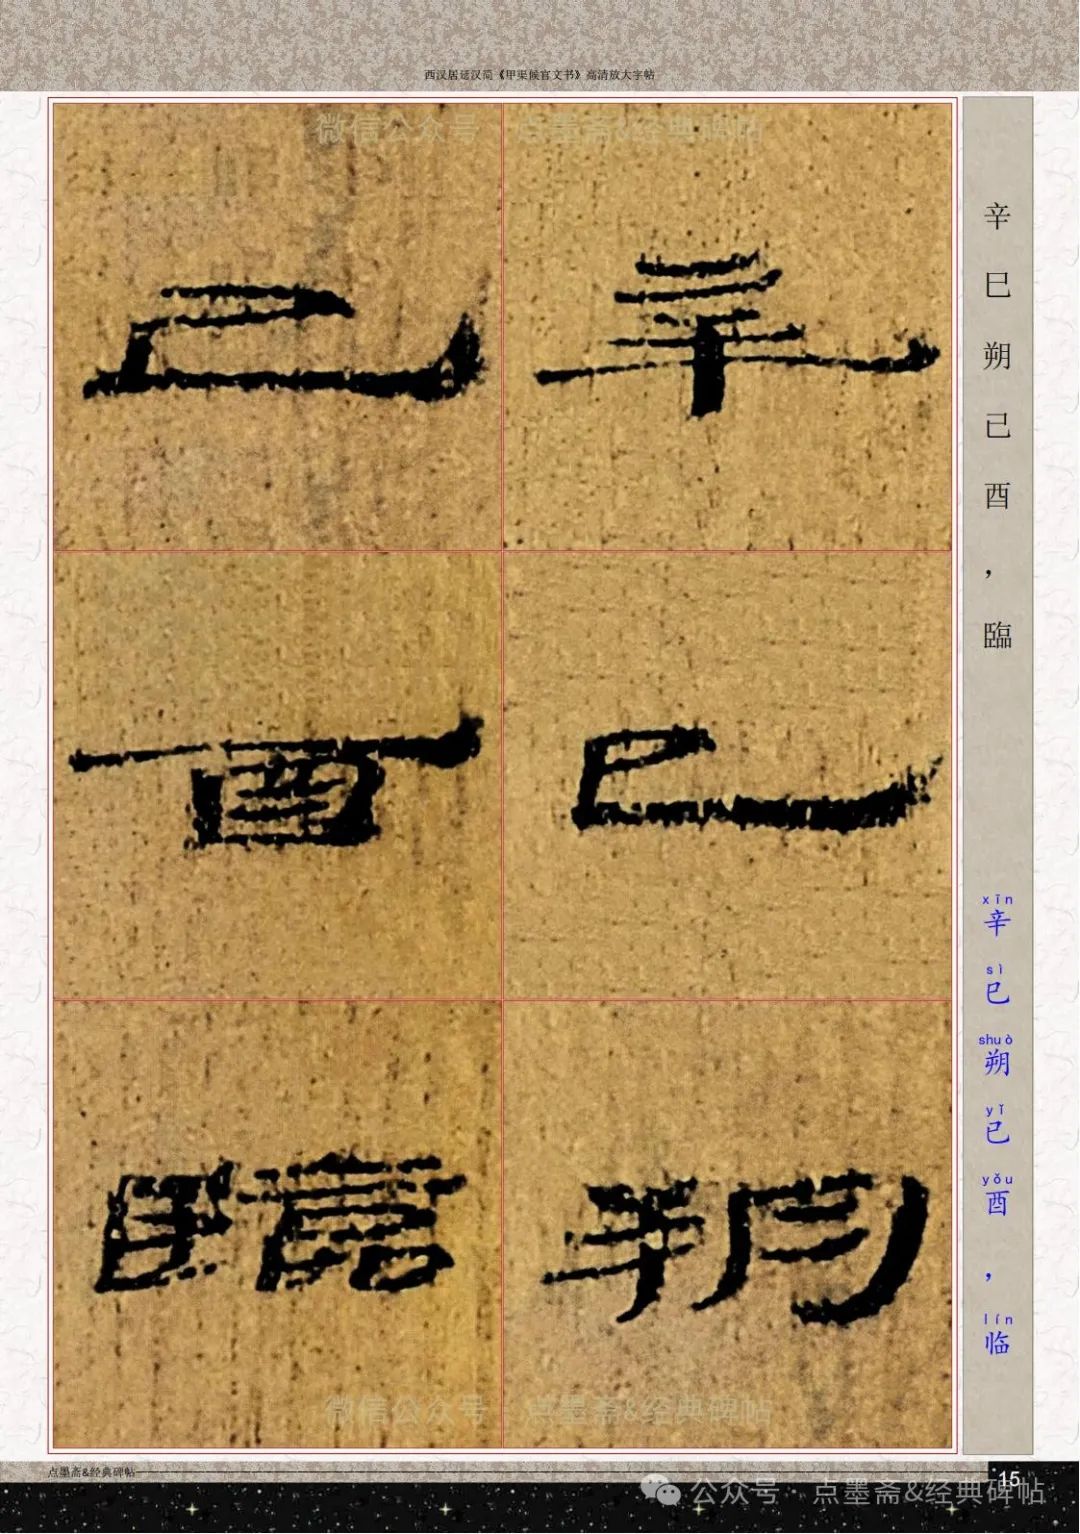 西汉居延汉简《甲渠候官文书》高清放大字帖
微信公众号 点墨斋&经典碑帖
辛巳朔
己酉臨
辛巳朔己酉，臨
xīn sì shuò yǐ yǒu lín
辛巳朔已酉，临
微信公众号 点墨斋&经典碑帖
点墨斋&经典碑帖
15
公众号 · 点墨斋&经典碑帖